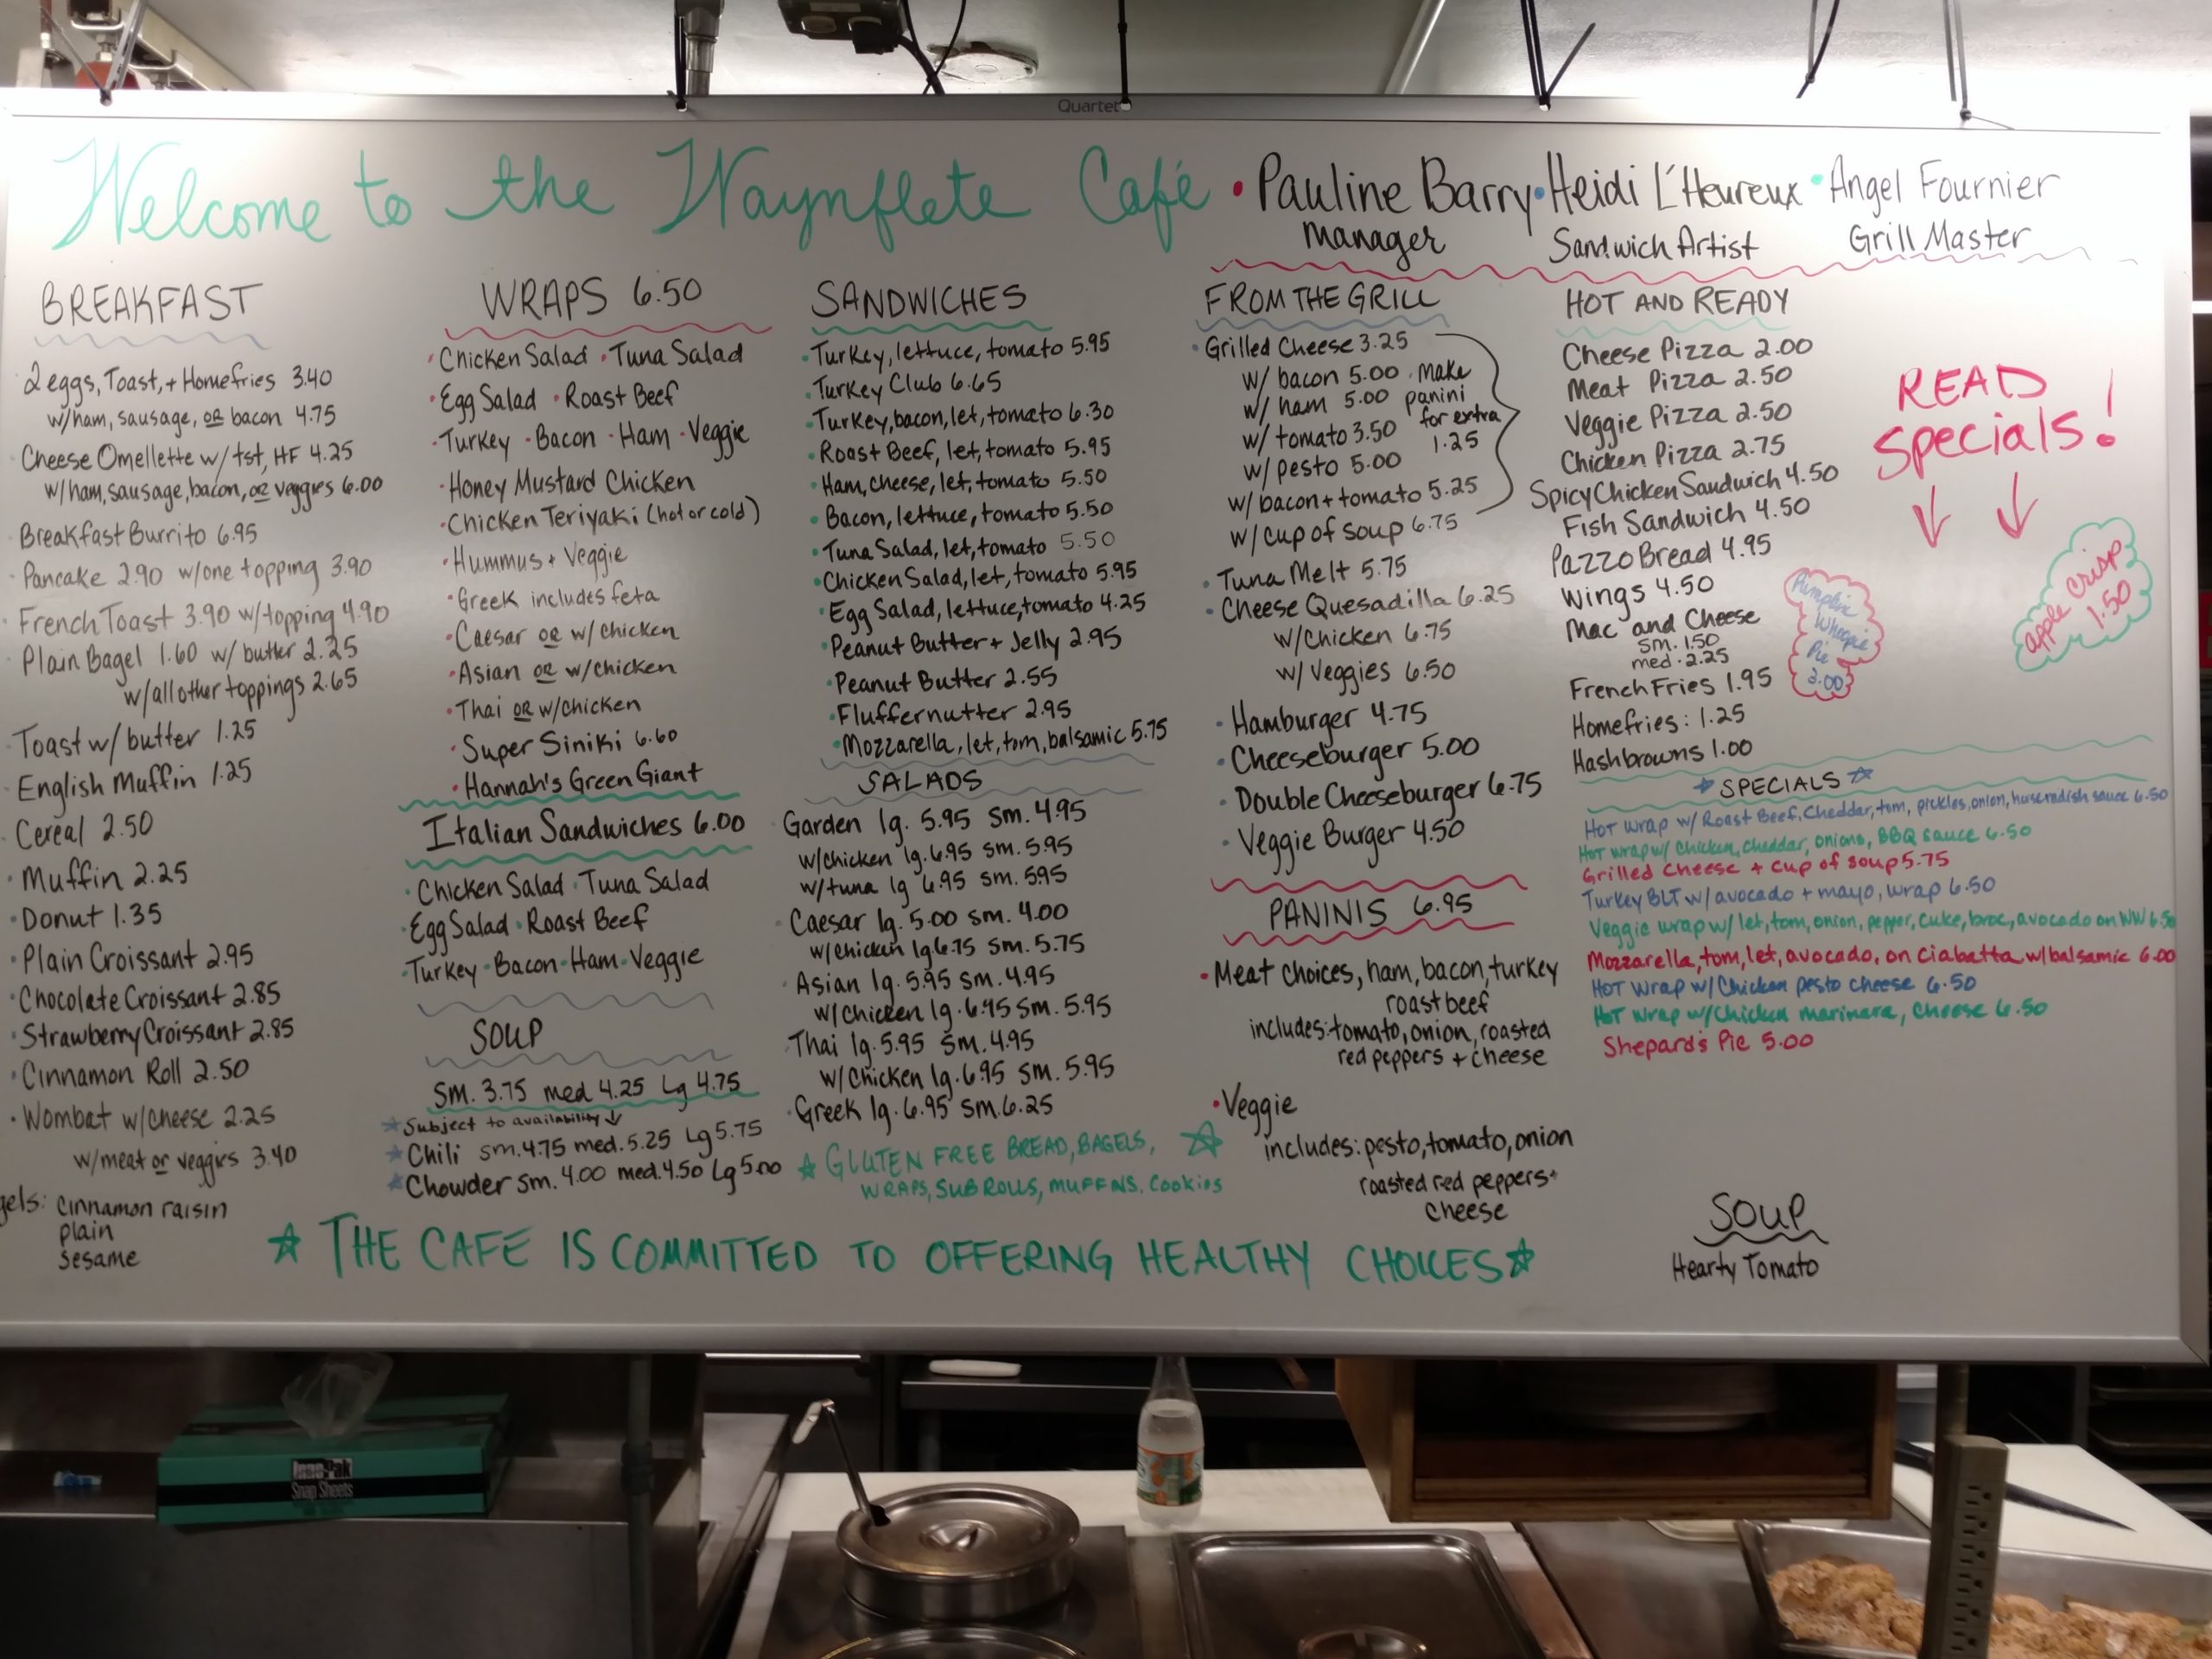 Quartet
Welcome to the Waynflete Café • Pauline Barry • Heidi L'Heureux • Angel Fournier
Manager
Sandwich Artist
Grill Master
BREAKFAST
2 eggs, Toast, + Homefries 3.40
w/ham, sausage, or bacon 4.75
Cheese Omellette w/ tst, HF 4.25
w/ham, sausage, bacon, or veggies 6.00
Breakfast Burrito 6.95
Pancake 2.90 w/one topping 3.90
French Toast 3.90 w/topping 4.90
Plain Bagel 1.60 w/ butter 2.25
w/all other toppings 2.65
Toast w/ butter 1.25
English Muffin 1.25
Cereal 2.50
Muffin 2.25
Donut 1.35
Plain Croissant 2.95
Chocolate Croissant 2.85
Strawberry Croissant 2.85
Cinnamon Roll 2.50
Wombat w/cheese 2.25
w/meat or veggies 3.40
gels: cinnamon raisin
plain
sesame
WRAPS 6.50
Chicken Salad • Tuna Salad
Egg Salad • Roast Beef
Turkey • Bacon • Ham • Veggie
Honey Mustard Chicken
Chicken Teriyaki (hot or cold)
Hummus + Veggie
Greek includes feta
Caesar or w/ chicken
Asian or w/chicken
Thai or w/chicken
Super Siniki 6.60
Hannah's Green Giant
Italian Sandwiches 6.00
Chicken Salad • Tuna Salad
Egg Salad • Roast Beef
Turkey • Bacon • Ham • Veggie
SOUP
Sm. 3.75 med 4.25 Lg 4.75
Subject to availability ↓
Chili sm. 4.75 med. 5.25 Lg 5.75
Chowder sm. 4.00 med. 4.50 Lg 5.00
SANDWICHES
Turkey, lettuce, tomato 5.95
Turkey Club 6.65
Turkey, bacon, let, tomato 6.30
Roast Beef, let, tomato 5.95
Ham, cheese, let, tomato 5.50
Bacon, lettuce, tomato 5.50
Tuna Salad, let, tomato 5.50
Chicken Salad, let, tomato 5.95
Egg Salad, lettuce, tomato 4.25
Peanut Butter + Jelly 2.95
Peanut Butter 2.55
Fluffernutter 2.95
Mozzarella, let, tom, balsamic 5.75
SALADS
Garden lg. 5.95 sm. 4.95
w/chicken lg. 6.95 sm. 5.95
w/tuna lg 6.95 sm. 5.95
Caesar lg. 5.00 sm. 4.00
w/chicken lg 6.75 sm. 5.75
Asian lg. 5.95 sm. 4.95
w/chicken lg. 6.95 sm. 5.95
Thai lg. 5.95 sm. 4.95
w/chicken lg. 6.95 sm. 5.95
Greek lg. 6.95 sm. 6.25
GLUTEN FREE BREAD, BAGELS,
WRAPS, SUB ROLLS, MUFFINS, Cookies
FROM THE GRILL
Grilled Cheese 3.25
w/ bacon 5.00
w/ ham 5.00
w/ tomato 3.50
w/ pesto 5.00
w/ bacon + tomato 5.25
w/ cup of soup 6.75
Make
panini
for extra
1.25
Tuna Melt 5.75
Cheese Quesadilla 6.25
w/Chicken 6.75
w/ Veggies 6.50
Hamburger 4.75
Cheeseburger 5.00
Double Cheeseburger 6.75
Veggie Burger 4.50
PANINIS 6.95
Meat choices, ham, bacon, turkey
roast beef
includes: tomato, onion, roasted
red peppers + cheese
Veggie
includes: pesto, tomato, onion
roasted red peppers +
cheese
HOT AND READY
Cheese Pizza 2.00
Meat Pizza 2.50
Veggie Pizza 2.50
Chicken Pizza 2.75
Spicy Chicken Sandwich 4.50
Fish Sandwich 4.50
Pazzo Bread 4.95
Wings 4.50
Mac and Cheese
sm. 1.50
med. 2.25
French Fries 1.95
Homefries: 1.25
Hashbrowns 1.00
READ
Specials!
Pumpkin
Whoopie
Pie
2.00
apple crisp
1.50
SPECIALS
Hot wrap w/ Roast Beef, Cheddar, tom, pickles, onion, horseradish sauce 6.50
Hot wrap w/ Chicken, cheddar, onions, BBQ sauce 6.50
Grilled cheese + cup of soup 5.75
Turkey BLT w/ avocado + mayo, wrap 6.50
Veggie wrap w/ let, tom, onion, pepper, cuke, broc, avocado on WW 6.50
Mozzarella, tom, let, avocado, on ciabatta w/balsamic 6.00
Hot wrap w/Chicken pesto cheese 6.50
Hot wrap w/Chicken marinara, cheese 6.50
Shepard's Pie 5.00
SOUP
Hearty Tomato
THE CAFE IS COMMITTED TO OFFERING HEALTHY CHOICES
InnoPak
Snap Sheets